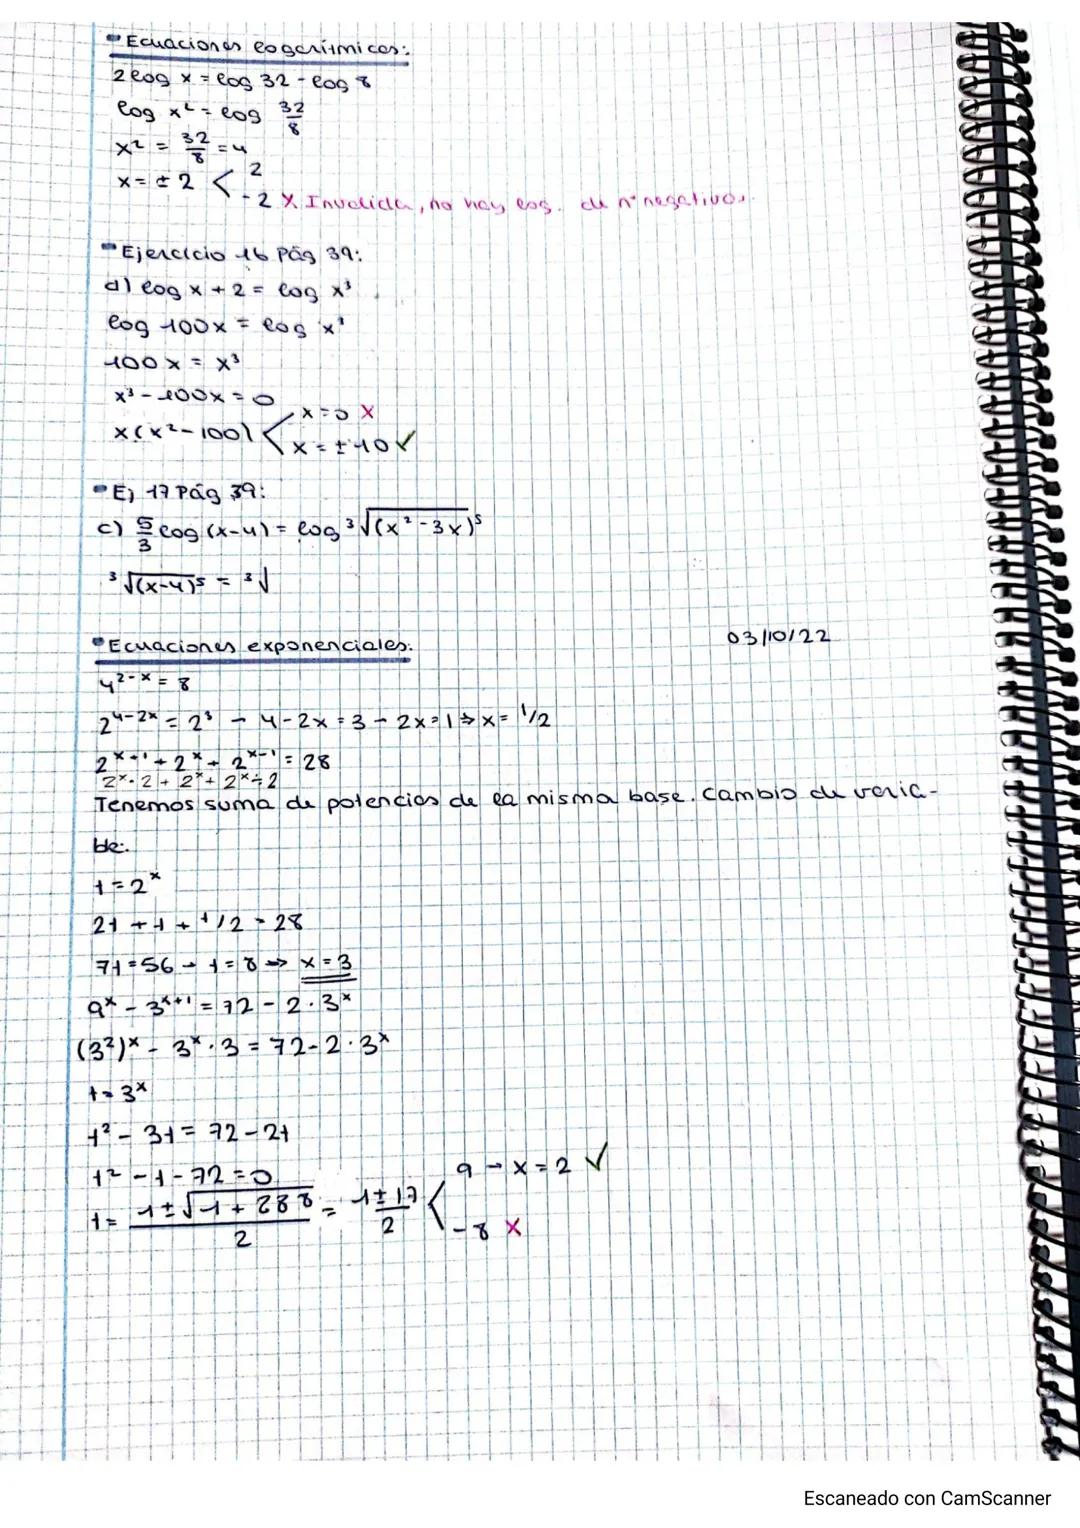 Ecuaciones logarítmicas:
2log x = log 32 - log 8
log x² = log 32/8
x² = 32/8 = 4
x = ± 2 < 2
-2 X Invalida, no hay log. de nº negativos.
Ejercicio 16 Pág 39:
d) log x + 2 = log x³
log 100x = log x³
100x = x³
x³ - 100x = 0
x(x² - 100) < x = 0 X
x = ± 10 ✓
Ej 17 Pág 39:
c) 5/3 log (x-4) = log ³√(x² - 3x)⁵
³√(x-4)⁵ = ³√
Ecuaciones exponenciales: 03/10/22
4²⁻ˣ = 8
2⁴⁻²ˣ = 2³ → 4-2x = 3 → 2x = 1 → x = 1/2
2ˣ⁺¹ + 2ˣ + 2ˣ⁻¹ = 28
2ˣ · 2 + 2ˣ + 2ˣ ÷ 2
Tenemos suma de potencias de la misma base. Cambio de varia-
ble:
t = 2ˣ
2t + t + t/2 = 28
7t = 56 → t = 8 → x = 3
9ˣ - 3ˣ⁺¹ = 72 - 2 · 3ˣ
(3²)ˣ - 3ˣ · 3 = 72 - 2 · 3ˣ
t = 3ˣ
t² - 3t = 72 - 2t
t² - t - 72 = 0
t = 1 ± √1 + 288 / 2 = 1 ± 17 / 2 < 9 → x = 2 ✓
-8 X
Escaneado con CamScanner